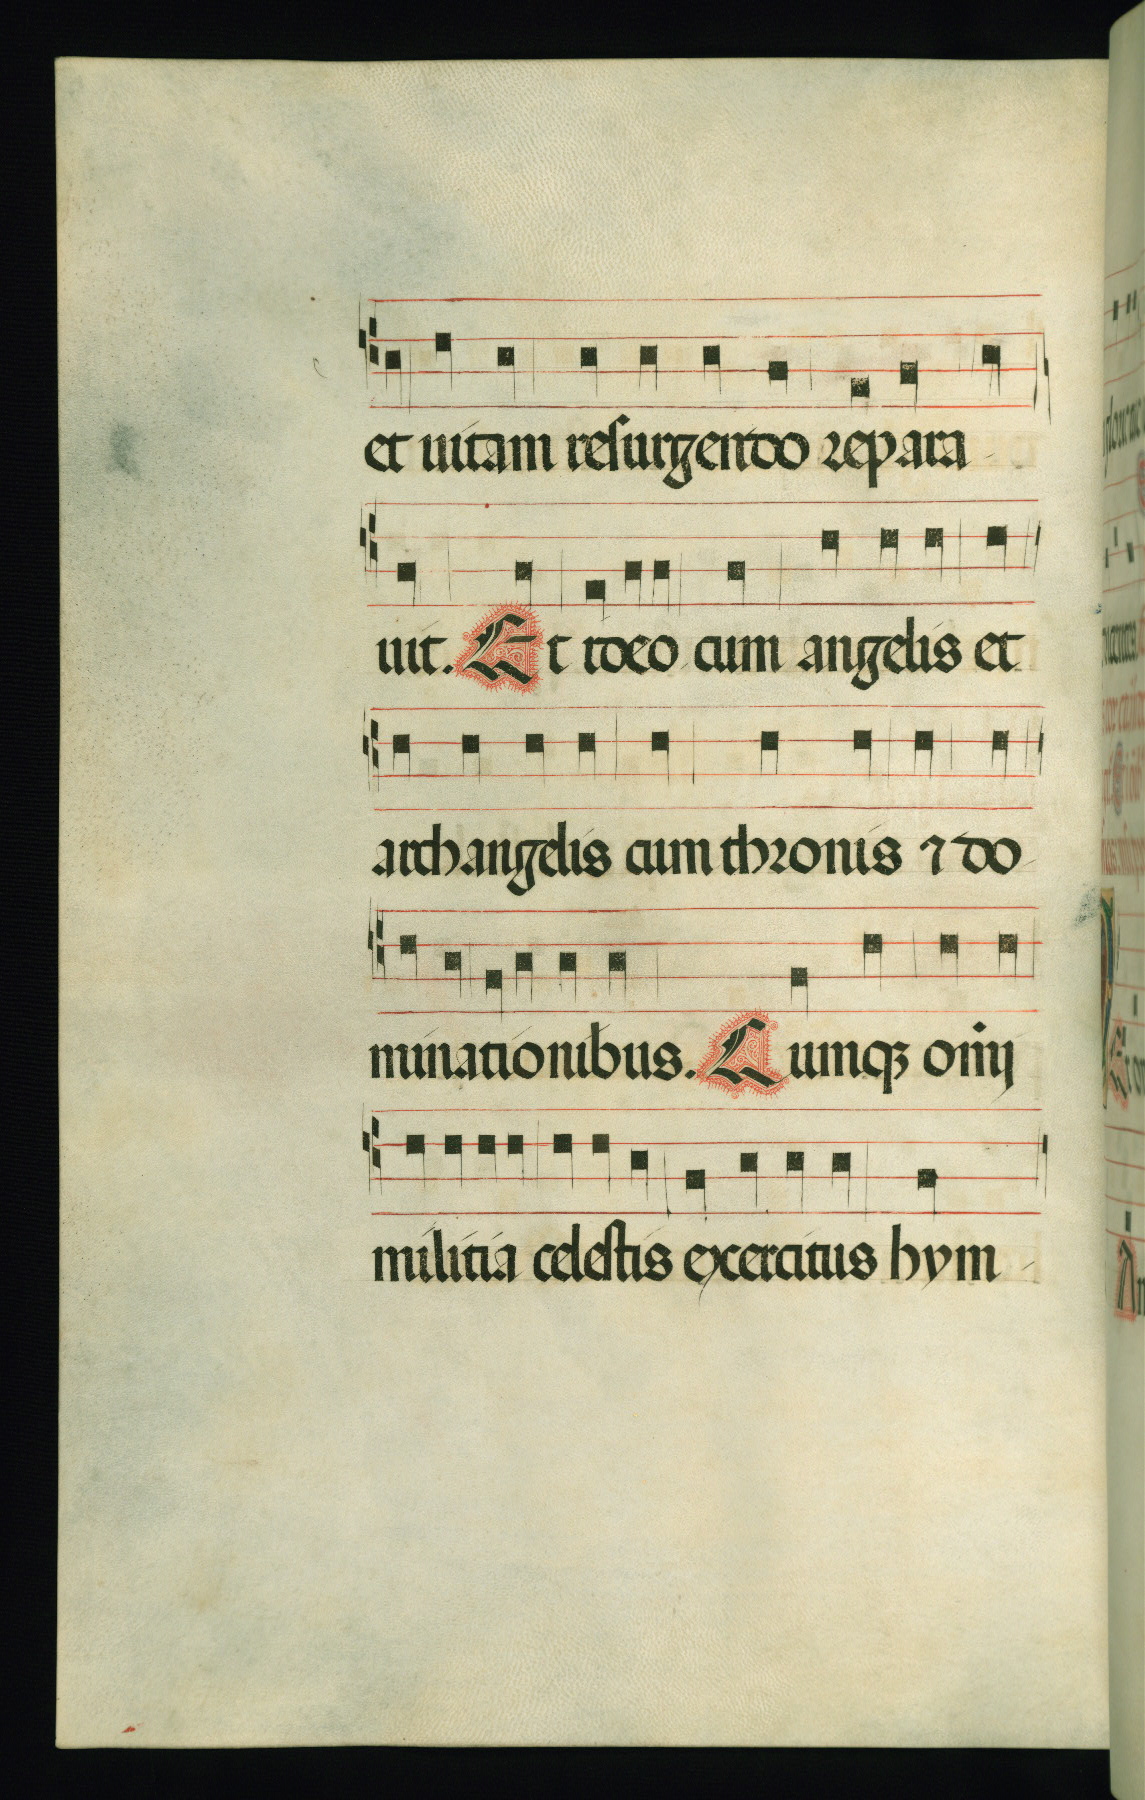 et uitam resurgendo repara
uit. Et ideo cum angelis et
archangelis cum thronis ⁊ do
minationibus. Cumqꝫ om̄i
militia celestis exercitus hym-